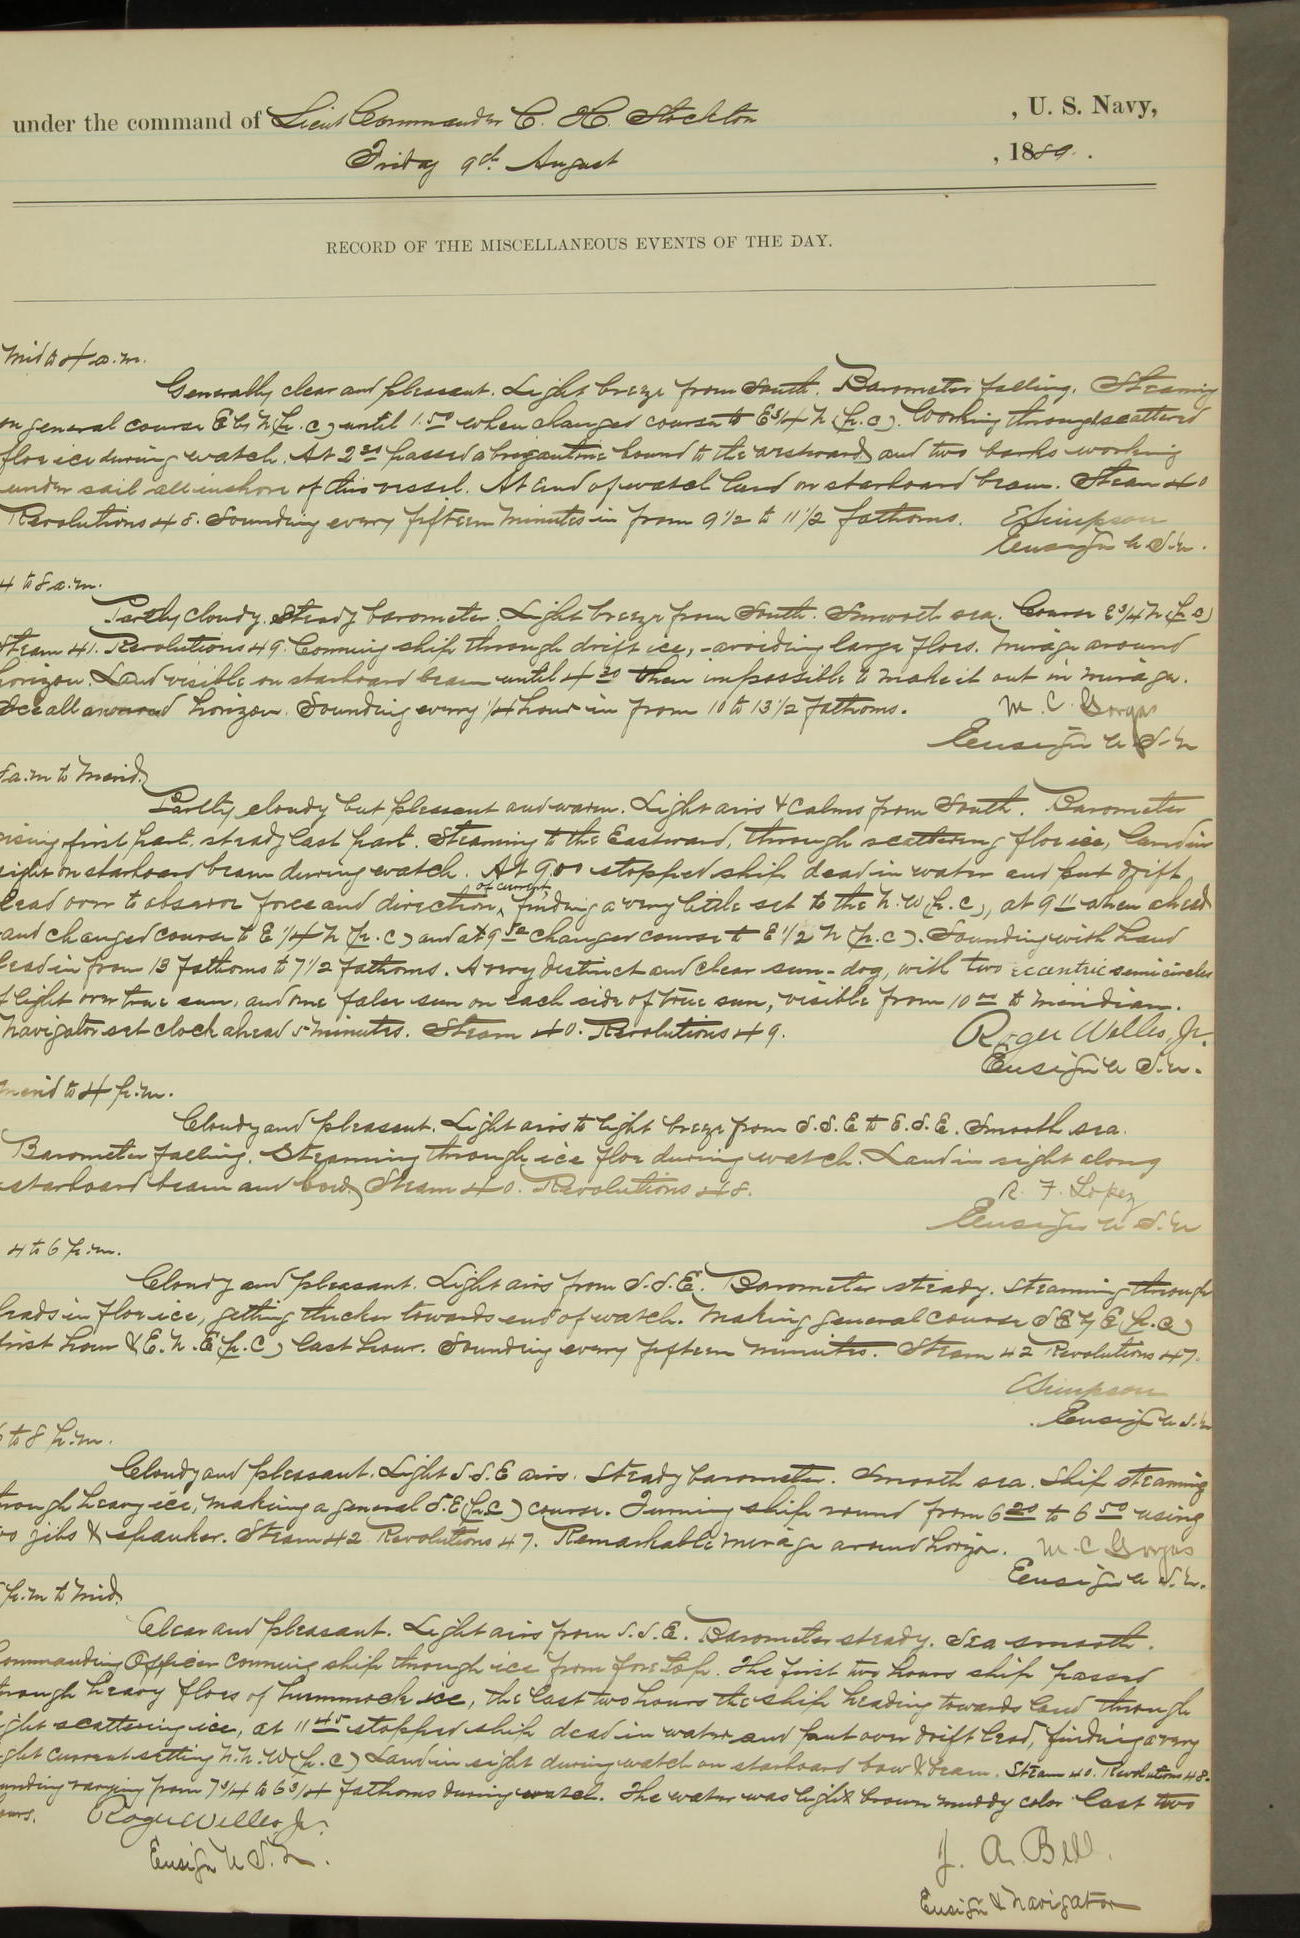 under the command of Lieut Commander C. H. Stockton , U. S. Navy,
Friday 9th August , 1889 .
RECORD OF THE MISCELLANEOUS EVENTS OF THE DAY.
Mid to 4 a.m.
Generally clear and pleasant. Light breeze from South. Barometer falling. Steaming
on general course E by N (p.c) until 1.50 when changed course to E 3/4 N (p.c). Working through scattered
floe ice during watch. At 2 passed a brigantine bound to the westward and two barks working
under sail all inshore of this vessel. At end of watch land on starboard beam. Steam 40
Revolutions 48. Sounding every fifteen minutes in from 9 1/2 to 11 1/2 fathoms. E Simpson
Ensign U.S.N.
4 to 8 a.m.
Partly cloudy. Steady barometer. Light breeze from South. Smooth sea. Course E 3/4 N (p.c)
Steam 41. Revolutions 49. Conning ship through drift ice, avoiding large floes. Mirage around
horizon. Land visible on starboard beam until 4 then impossible to make it out in mirage.
Ice all around horizon. Sounding every 1/4 hour in from 10 to 13 1/2 fathoms. M. C. Gorgas
Ensign U.S.N
8 a.m to Merid.
Partly cloudy but pleasant and warm. Light airs & calms from South. Barometer
rising first part, steady last part. Steaming to the Eastward, through scattering floe ice, land in
sight on starboard beam during watch. At 9 00 stopped ship dead in water and put drift
lead over to observe force and direction of current, finding a very little set to the N.W (p.c), at 9 11 went ahead
and changed course to E 1/4 N (p.c) and at 9 changed course to E 1/2 N (p.c). Sounding with hand
lead in from 13 fathoms to 7 1/2 fathoms. A very distinct and clear sun-dog, with two eccentric semicircles
of light over true sun, and one false sun on each side of true sun, visible from 10 to meridian.
Navigator set clock ahead 5 minutes. Steam 40. Revolutions 49. Roger Welles, Jr.
Ensign U.S.N.
Merid to 4 p.m.
Cloudy and pleasant. Light airs to light breeze from S.S.E to E.S.E. Smooth sea.
Barometer falling. Steaming through ice floe during watch. Land in sight along
starboard beam and bow. Steam 40. Revolutions 48. R. F. Lopez
Ensign U.S.N
4 to 6 p.m.
Cloudy and pleasant. Light airs from S.S.E. Barometer steady. Steaming through
leads in floe ice, getting thicker towards end of watch. Making general course SE by E (p.c)
first hour & E.N.E (p.c) last hour. Sounding every fifteen minutes. Steam 42 Revolutions 47.
E Simpson
Ensign U.S.N
6 to 8 p.m.
Cloudy and pleasant. Light S.S.E airs. Steady barometer. Smooth sea. Ship steaming
through heavy ice, making a general S.E (p.c) course. Turning ship round from 6 20 to 6 50 using
two jibs & spanker. Steam 42 Revolutions 47. Remarkable mirage around horizon. M C Gorgas
Ensign U.S.N.
8 p.m to Mid.
Clear and pleasant. Light airs from S.S.E. Barometer steady. Sea smooth.
Commanding Officer conning ship through ice from fore top. The first two hours ship passed
through heavy floes of hummock ice, the last two hours the ship heading towards land through
light scattering ice, at 11 45 stopped ship dead in water and put over drift lead, finding a very
light current setting N.N.W (p.c) Land in sight during watch on starboard bow & beam. Steam 40. Revolutions 48.
Sounding varying from 7 3/4 to 6 3/4 fathoms during watch. The water was light brown muddy color last two
hours. Roger Welles, Jr.
Ensign U.S.N.
J. A. Bell.
Ensign & Navigator